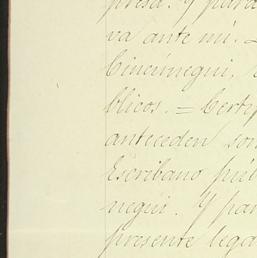 presa. Y para
va ante mi. =
Cincúnegui,
blicos. = Certi
anteceden son
Escribano púb
negui. Y par
presente lega